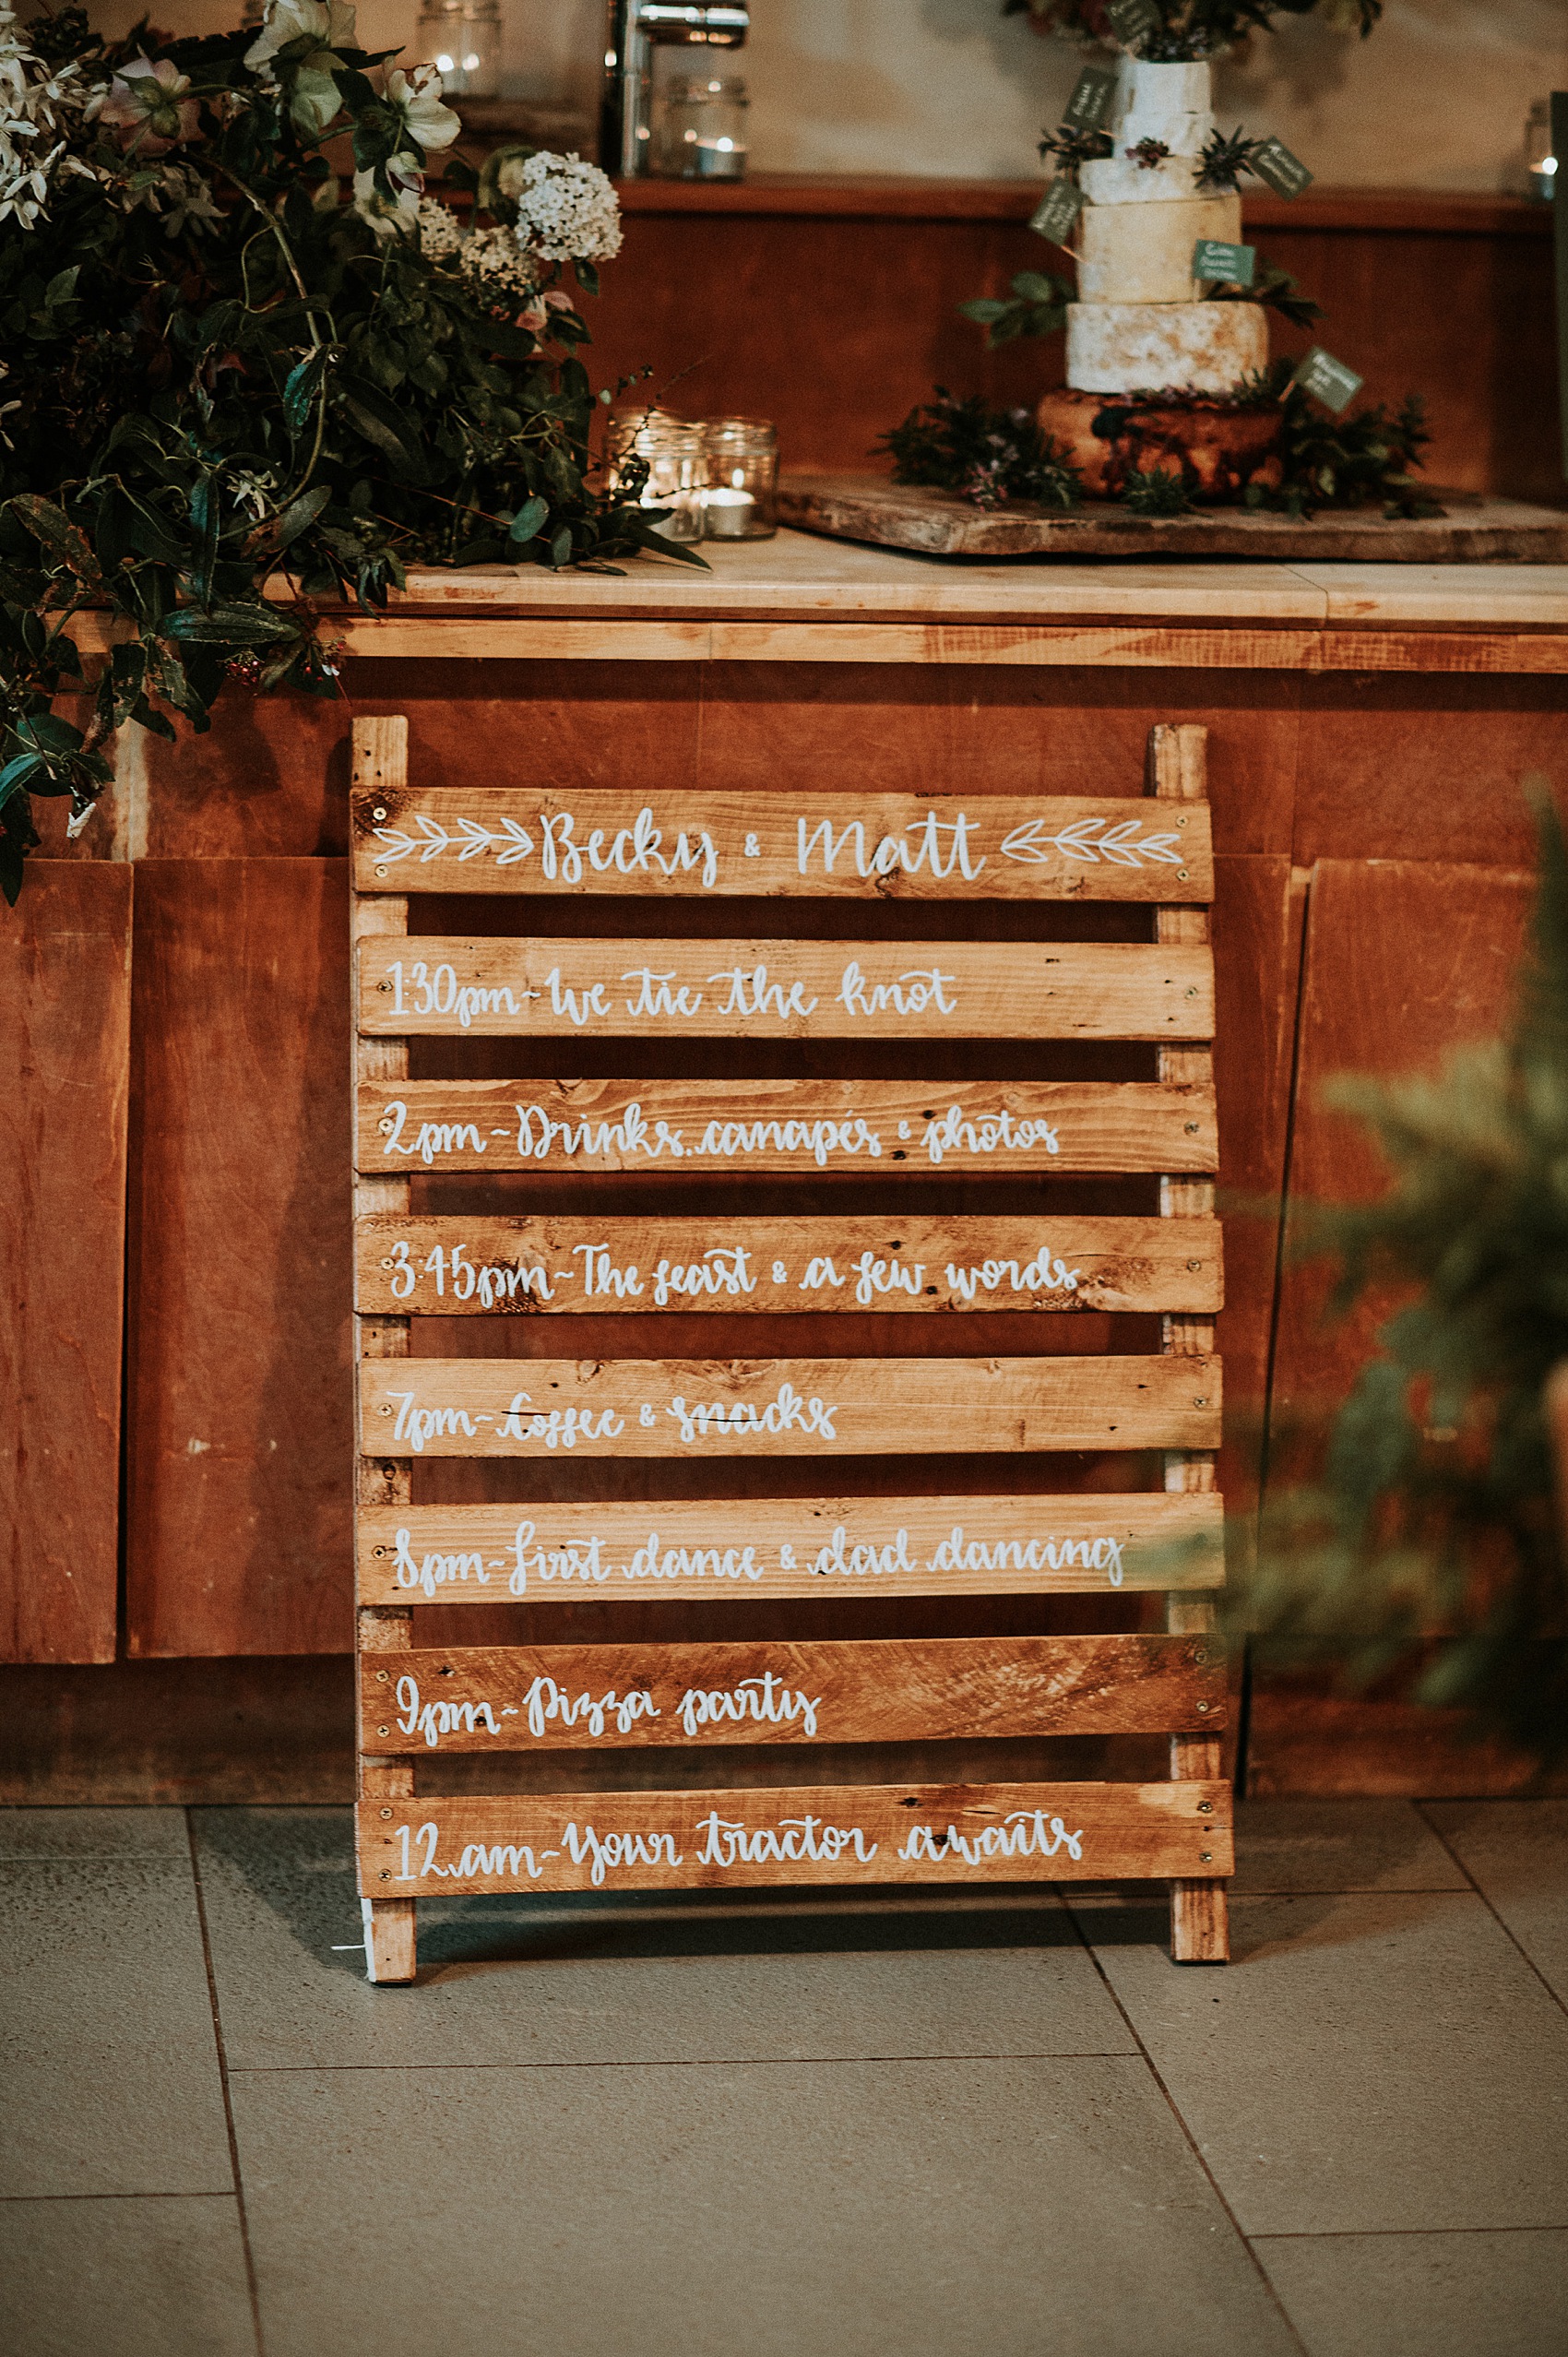 Becky & Matt
1:30pm~We tie the knot
2pm~Drinks, canapés & photos
3.45pm~The feast & a few words
7pm~Coffee & snacks
8pm~first dance & dad dancing
9pm~Pizza party
12am~Your tractor awaits